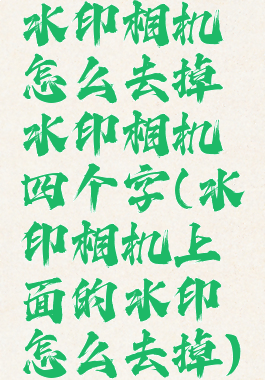 水印相机
怎么去掉
水印相机
四个字(水
印相机上
面的水印
怎么去掉)